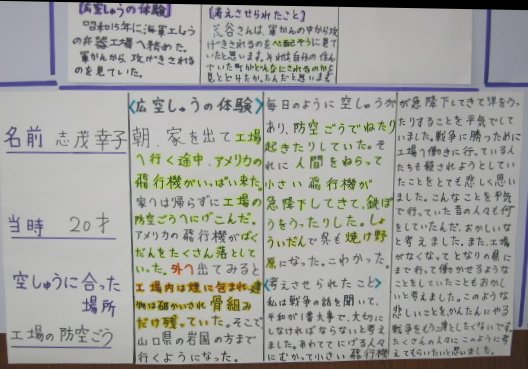 【空しゅうの体験】
昭和15年に海軍工しょう
の兵器工場へ務めた。
軍かんから攻げきされる
のを見ていた。
【考えさせられたこと】
荒谷さんは、軍かんの中から攻
げきされるのを心配そうに見て
いたと思います。それは自分の住ん
でいた町がどんなにされるのかを
見とどけたかったんだと思います
名前 志茂幸子
当時 20才
空しゅうに合った
場所
工場の防空ごう
〈広空しゅうの体験〉
朝、家を出て工場
へ行く途中、アメリカの
飛行機がいっぱい来た。
家へは帰らずに工場の
防空ごうへにげこんだ。
アメリカの飛行機がばく
だんをたくさん落として
いった。外へ出てみると
工場内は煙に包まれ、建
物は破かいされ骨組み
だけ残っていた。そこで
山口県の岩国の方まで
行くようになった。
毎日のように空しゅうが
あり、防空ごうでねたり
起きたりしていた。そ
れに人間をねらって
小さい飛行機が
急降下してきて、鉄ぽ
うをうったりした。しょ
ういだんで呉も焼け野
原になった。こわかった。
〈考えさせられたこと〉
私は戦争の話を聞いて、
平和が1番大事で、大切に
しなければならないと考え
ました。あわててにげる人々
にむかって小さい飛行機
が急降下してきて弾をう
たりすることを平気でして
いました。戦争に勝つために
工場で働きに行っている人
たちも殺されようとしてい
たことをとても悲しく思い
ました。こんなことを平気
で行っていた昔の人々も何
をしていたんだ、おかしいな
と考えました。また、工場
がなくなってとなりの県に
まで行って働かせるような
ことをしていたこともおかし
いと考えました。このような
悲しいことをかんたんにやる
戦争をもう二度としたくないです。
たくさんの人々にこのように考
えてもらいたいと思いました。